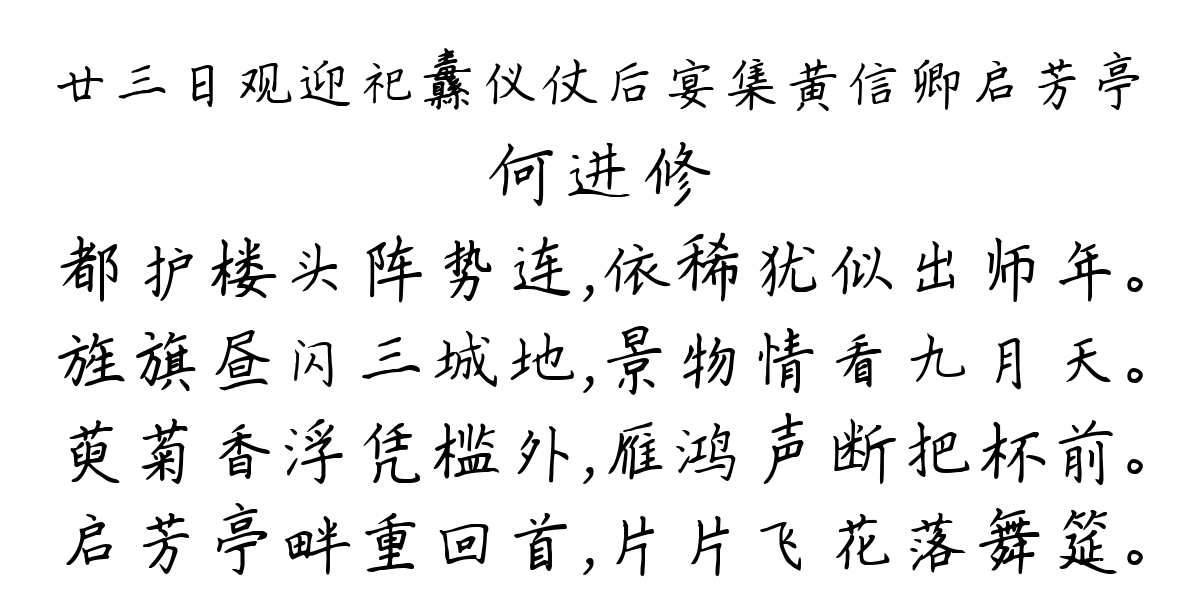 廿三日观迎祀纛仪仗后宴集黄信卿启芳亭
何进修
都护楼头阵势连,依稀犹似出师年。
旌旗昼闪三城地,景物情看九月天。
萸菊香浮凭槛外,雁鸿声断把杯前。
启芳亭畔重回首,片片飞花落舞筵。